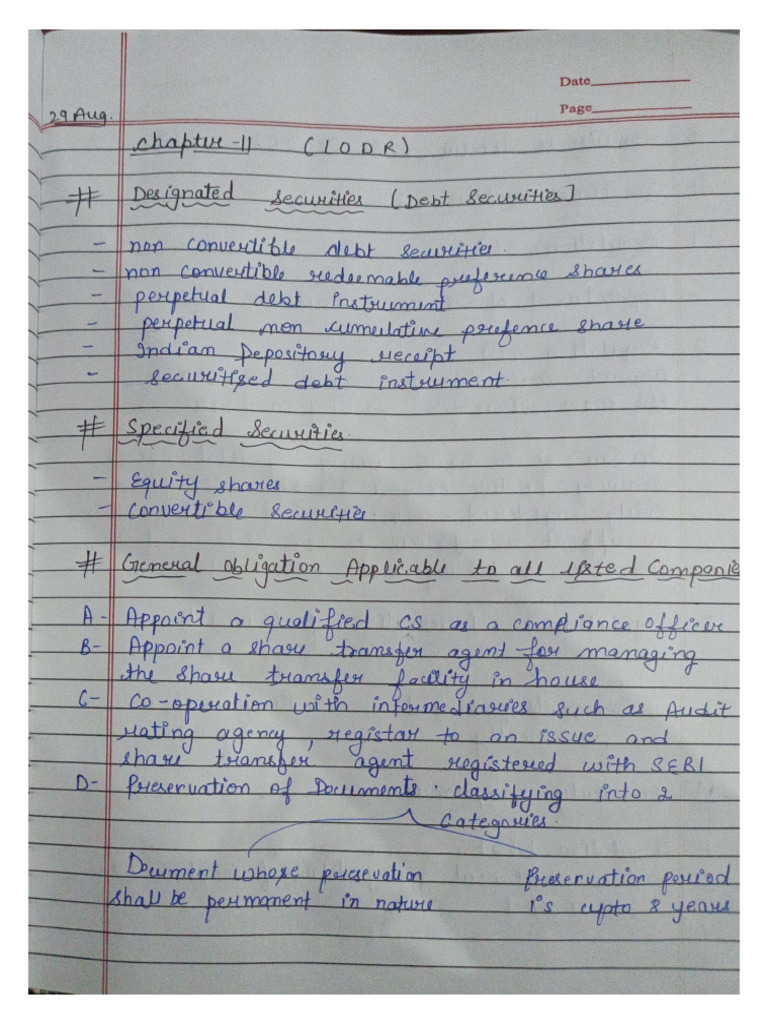 Date
Page
29 Aug.
Chapter-11 (LODR)
# Designated Securities (Debt Securities]
- non convertible debt securities.
- non convertible redeemable preference shares
- perpetual debt instrument
- perpetual non cumulative prefence share
- Indian Depository receipt
- securitised debt instrument.
# Specified Securities.
- Equity shares
- Convertible Securities.
# General Obligation Applicable to all listed Companie
A- Appoint a qualified CS as a compliance officer
B- Appoint a share transfer agent for managing
the share transfer facility in house
C- Co-operation with intermediaries such as Audit
rating agency, registar to an issue and
share transfer agent registered with SEBI
D- Preservation of Documents. classifying into 2
categories.
Document whose presevation Preservation period
shall be permanent in nature is upto 8 years